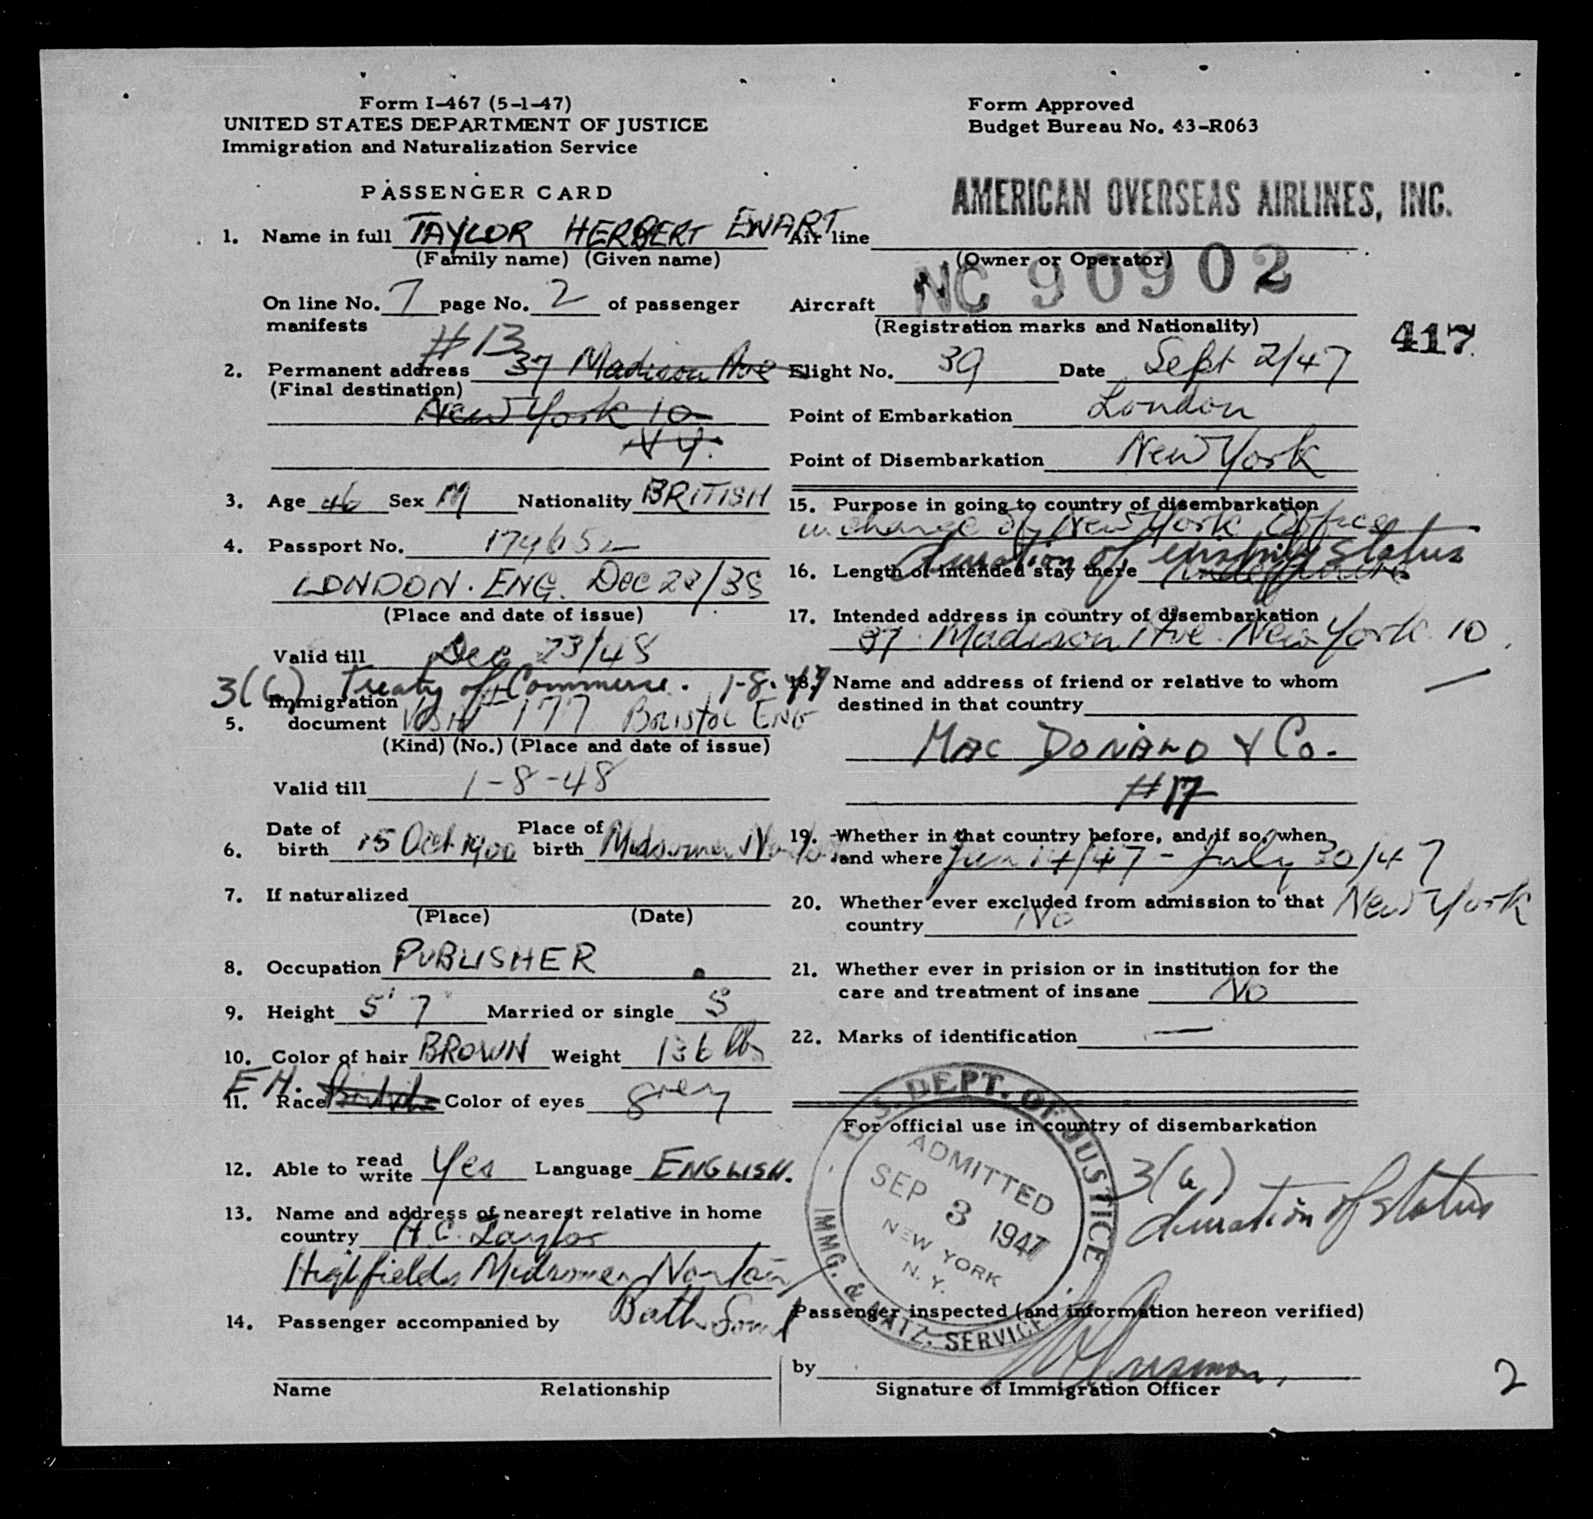 Form I-467 (5-1-47)
UNITED STATES DEPARTMENT OF JUSTICE
Immigration and Naturalization Service
PASSENGER CARD
1. Name in full TAYLOR HERBERT EWART
(Family name) (Given name)
On line No. 7 page No. 2 of passenger
manifests
#13
2. Permanent address 37 Madison Ave
(Final destination)
New York 10
N Y.
3. Age 46 Sex M Nationality BRITISH
4. Passport No. 174652
LONDON. ENG. Dec 23/38
(Place and date of issue)
Valid till Dec 23/48
3(6) Treaty of Commerce. 1-8-47
Immigration
5. document 177 Bristol ENG
(Kind) (No.) (Place and date of issue)
Valid till 1-8-48
6. Date of birth 15 Oct 1900 Place of birth Midsomer Norton
7. If naturalized
(Place) (Date)
8. Occupation PUBLISHER
9. Height 5' 7" Married or single S
10. Color of hair BROWN Weight 136 lbs
E H.
11. Race British Color of eyes grey
12. Able to read write Yes Language ENGLISH.
13. Name and address of nearest relative in home
country H. C. Taylor
Highfields Midsomer Norton
Bath Som't
14. Passenger accompanied by
Name Relationship
Form Approved
Budget Bureau No. 43-R063
AMERICAN OVERSEAS AIRLINES, INC.
Air line
(Owner or Operator)
Aircraft NC 90902
(Registration marks and Nationality)
417
Flight No. 39 Date Sept 2/47
Point of Embarkation London
Point of Disembarkation New York
15. Purpose in going to country of disembarkation
in charge of New York Office
duration of status
16. Length of intended stay there indefinite
17. Intended address in country of disembarkation
37 Madison Ave. New York 10.
18. Name and address of friend or relative to whom
destined in that country
MAC DONALD & Co.
#17
19. Whether in that country before, and if so, when
and where Jan 14/47 - July 30/47
New York
20. Whether ever excluded from admission to that
country No
21. Whether ever in prision or in institution for the
care and treatment of insane No
22. Marks of identification —
For official use in country of disembarkation
U.S. DEPT. OF JUSTICE
ADMITTED
SEP 3 1947
NEW YORK
N. Y.
IMMG. & NATZ. SERVICE
3(6)
duration of status
Passenger inspected (and information hereon verified)
by
Signature of Immigration Officer
2